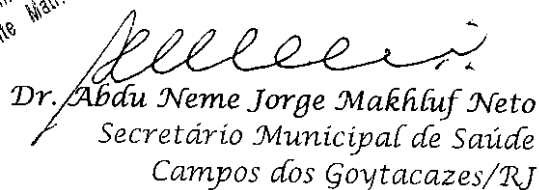 Dr. Abdu Neme Jorge Makhluf Neto
Secretário Municipal de Saúde
Campos dos Goytacazes/RJ